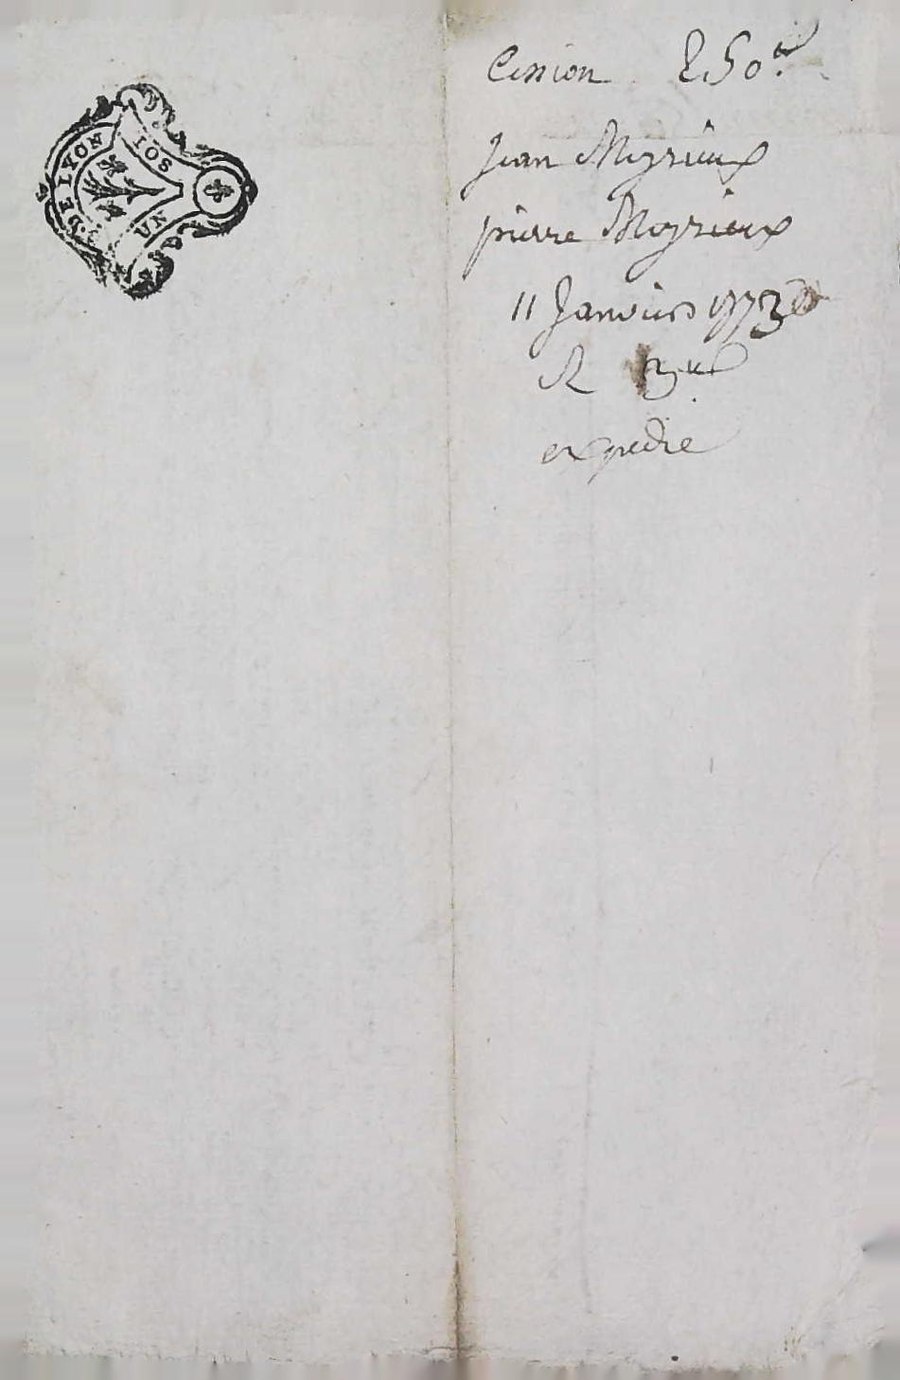 DE LYON
UN SOL
Cession 250ᵗᵗ
Jean Meyrieux
pierre Meyrieux
11 Janvier 1773
R
expedié